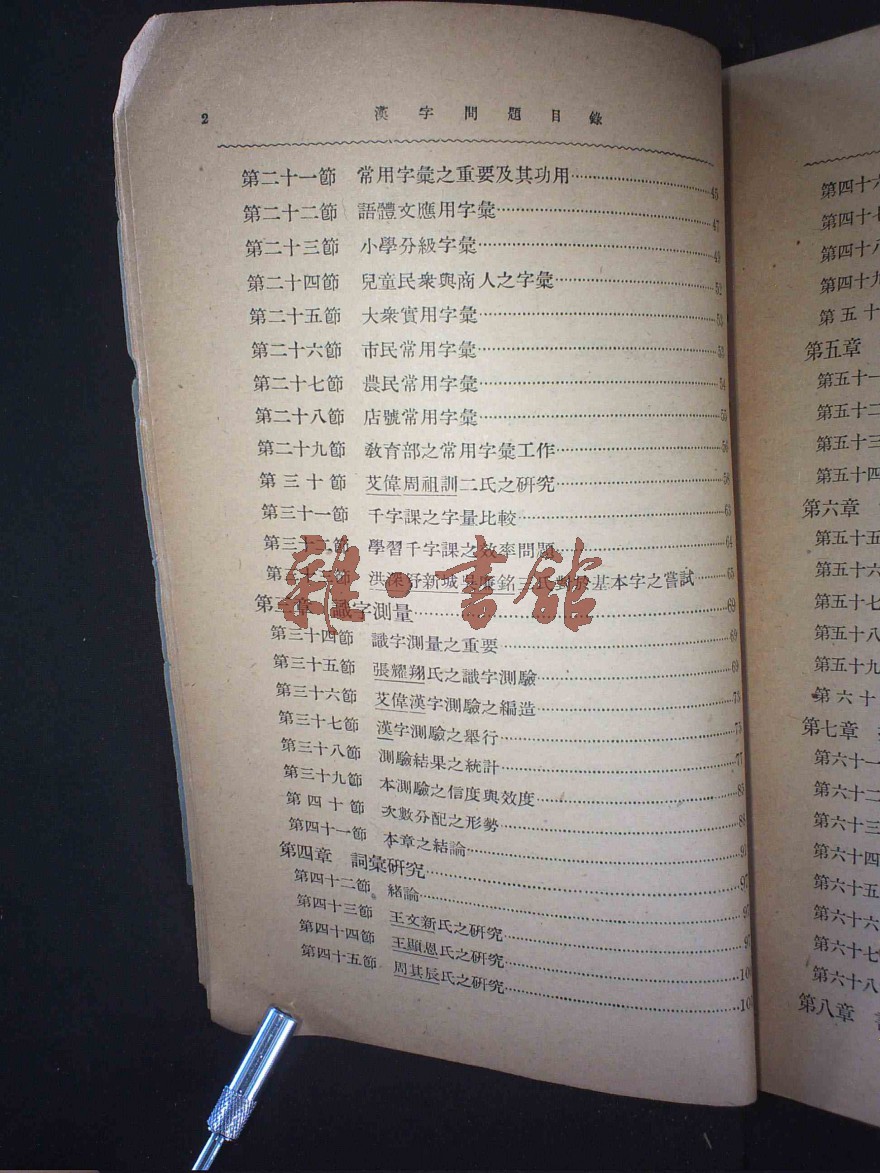 2 漢字問題目錄
第二十一節 常用字彙之重要及其功用……45
第二十二節 語體文應用字彙……47
第二十三節 小學分級字彙……49
第二十四節 兒童民衆與商人之字彙……52
第二十五節 大衆實用字彙……53
第二十六節 市民常用字彙……53
第二十七節 農民常用字彙……54
第二十八節 店號常用字彙……55
第二十九節 敎育部之常用字彙工作……56
第三十節 艾偉周祖訓二氏之研究……58
第三十一節 千字課之字量比較……63
第三十二節 學習千字課之效率問題……64
第三十三節 洪深舒新城吳廉銘三氏對於基本字之嘗試……65
第三章 識字測量……69
第三十四節 識字測量之重要……69
第三十五節 張耀翔氏之識字測驗……69
第三十六節 艾偉漢字測驗之編造……73
第三十七節 漢字測驗之舉行……75
第三十八節 測驗結果之統計……77
第三十九節 本測驗之信度與效度……85
第四十節 次數分配之形勢……88
第四十一節 本章之結論……91
第四章 詞彙研究……97
第四十二節 緒論……97
第四十三節 王文新氏之研究……97
第四十四節 王顯恩氏之研究……
第四十五節 周其辰氏之研究……
雜·書館
第四十六
第四十七
第四十八
第四十九
第五十
第五章
第五十一
第五十二
第五十三
第五十四
第六章
第五十五
第五十六
第五十七
第五十八
第五十九
第六十
第七章
第六十一
第六十二
第六十三
第六十四
第六十五
第六十六
第六十七
第六十八
第八章